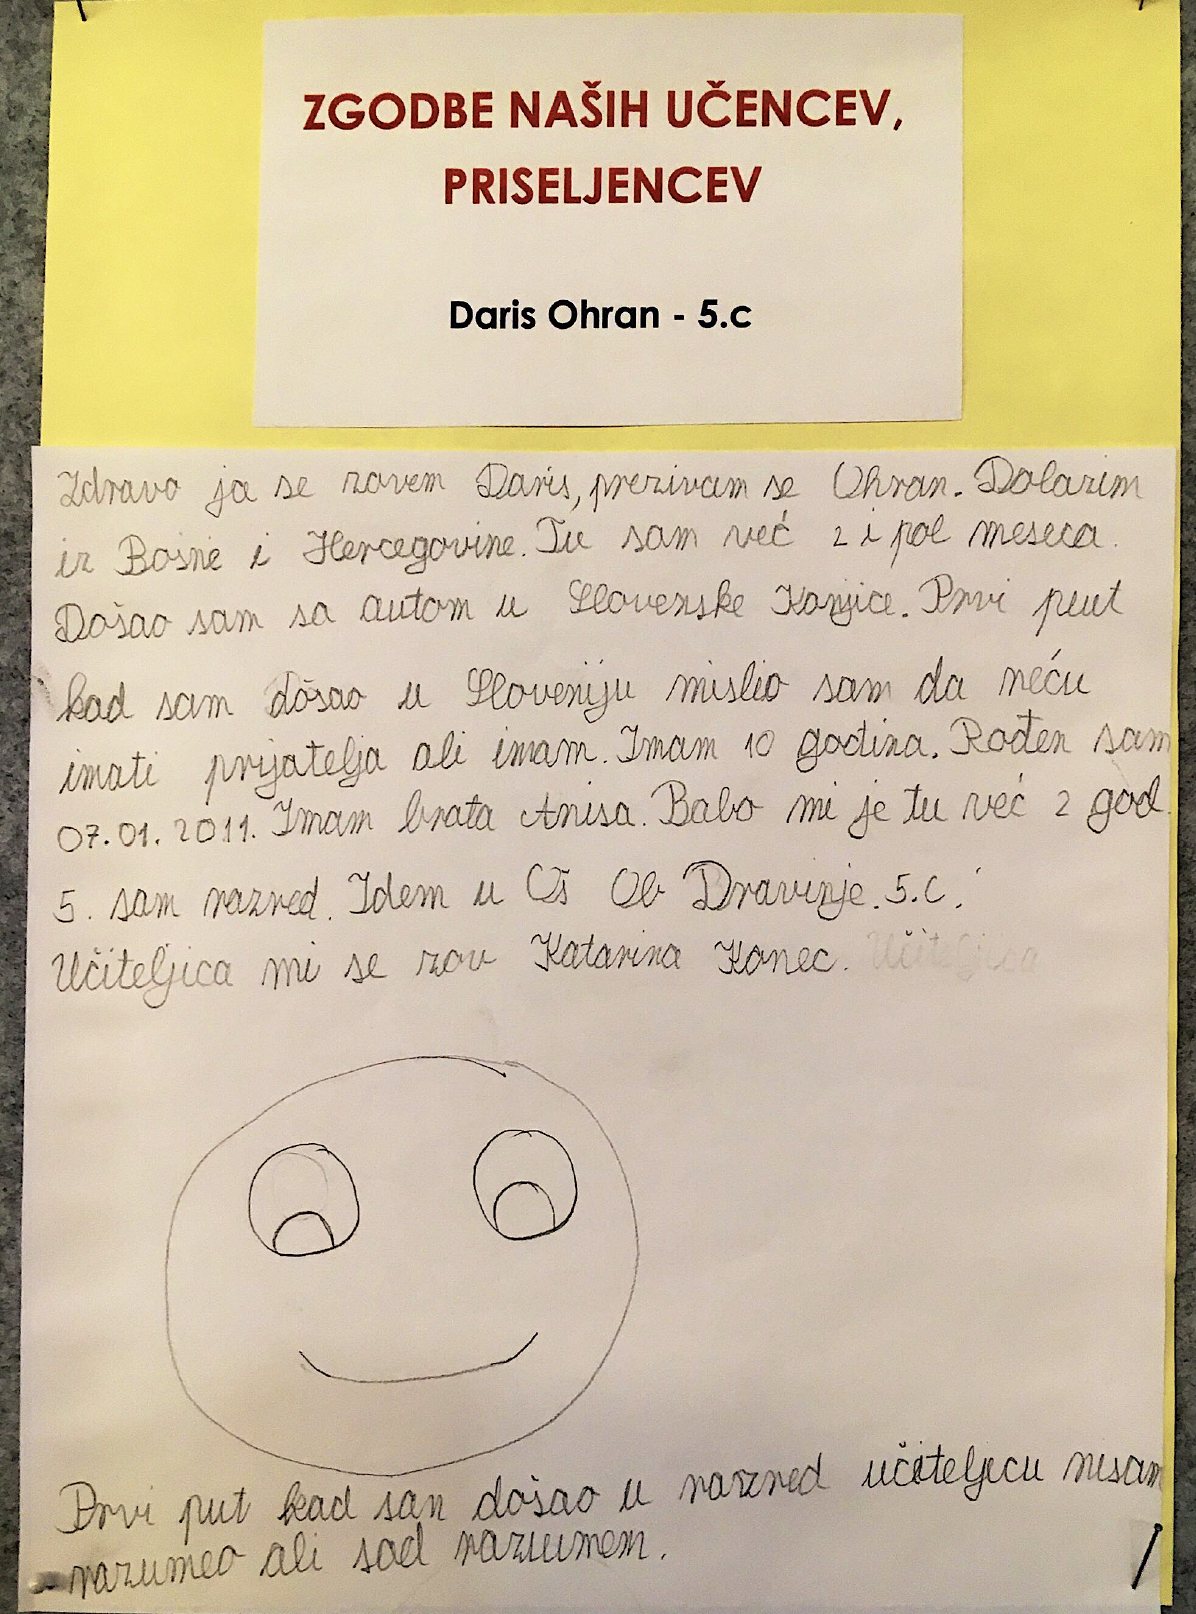 ZGODBE NAŠIH UČENCEV,
PRISELJENCEV
Daris Ohran - 5.c
Zdravo ja se zovem Daris, prezivam se Ohran. Dolazim
iz Bosne i Hercegovine. Tu sam već 2 i pol meseca.
Došao sam sa autom u Slovenske Konjice. Prvi put
kad sam došao u Sloveniju mislio sam da neću
imati prijatelja ali imam. Imam 10 godina. Rođen sam
07.01.2011. Imam brata Anisa. Babo mi je tu već 2 god.
5. sam razred. Idem u OŠ Ob Dravinje. 5.C.
Učiteljica mi se zov Katarina Konec. Učiteljica
Prvi put kad san došao u razred učiteljicu nisam
razumeo ali sad razumem.